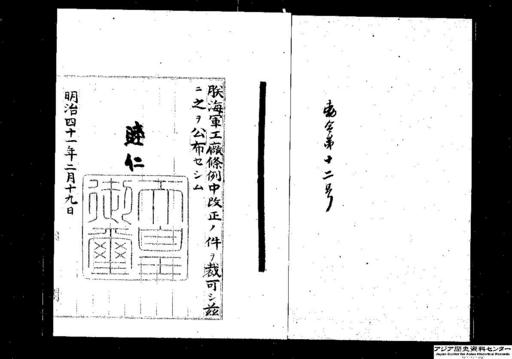 勅令第十二号
朕海軍工廠條例中改正ノ件ヲ裁可シ茲
ニ之ヲ公布セシム
睦仁
天皇御璽
明治四十一年二月十九日
アジア歴史資料センター
Japan Center for Asian Historical Records